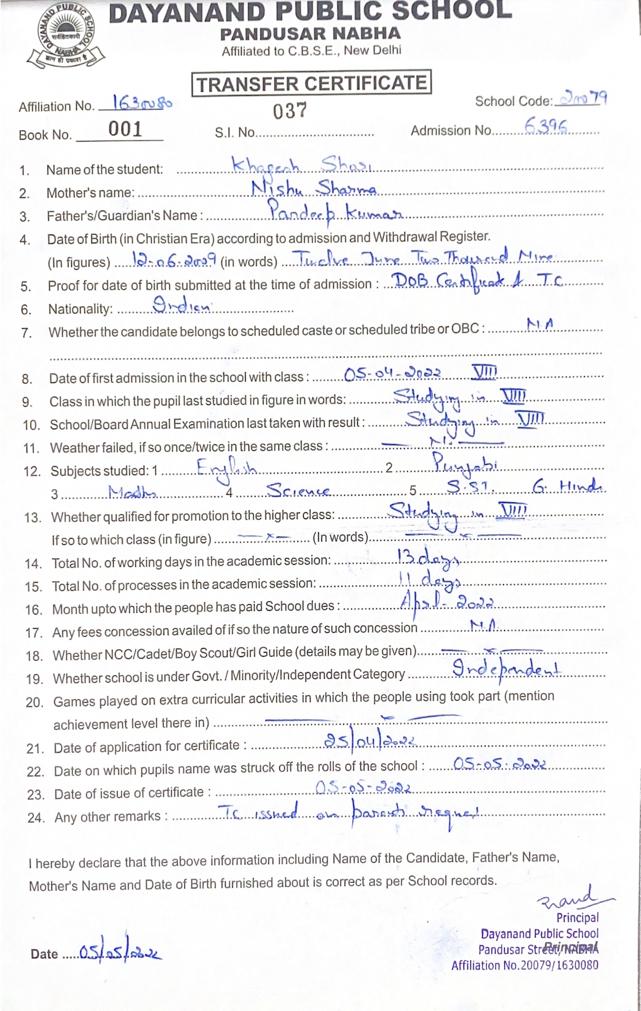 DAYANAND PUBLIC SCHOOL
PANDUSAR NABHA
Affiliated to C.B.S.E., New Delhi
TRANSFER CERTIFICATE
Affiliation No. 1630080 School Code: 20079
Book No. 001 S.I. No. 037 Admission No. 6396
1. Name of the student: Khagesh
2. Mother's name: Nishu Sharma
3. Father's/Guardian's Name : Pardeep Kumar
4. Date of Birth (in Christian Era) according to admission and Withdrawal Register.
(In figures) 12-06-2009 (in words) Twelve June Two Thousand Nine
5. Proof for date of birth submitted at the time of admission : DOB Certificate & TC
6. Nationality: Indian
7. Whether the candidate belongs to scheduled caste or scheduled tribe or OBC : NA
8. Date of first admission in the school with class : 05-04-2022 VIII
9. Class in which the pupil last studied in figure in words: Studying in VIII
10. School/Board Annual Examination last taken with result : Studying in VIII
11. Weather failed, if so once/twice in the same class :
12. Subjects studied: 1 English 2 Punjabi
3 Maths 4 Science 5 S.ST. 6. Hindi
13. Whether qualified for promotion to the higher class: Studying in VIII
If so to which class (in figure) —x— (In words)
14. Total No. of working days in the academic session: 13 days
15. Total No. of processes in the academic session: 11 days
16. Month upto which the people has paid School dues : April-2022
17. Any fees concession availed of if so the nature of such concession NA
18. Whether NCC/Cadet/Boy Scout/Girl Guide (details may be given)
19. Whether school is under Govt. / Minority/Independent Category Independent
20. Games played on extra curricular activities in which the people using took part (mention
achievement level there in)
21. Date of application for certificate : 25/04/2022
22. Date on which pupils name was struck off the rolls of the school : 05-05-2022
23. Date of issue of certificate : 05-05-2022
24. Any other remarks : TC issued on parents request
I hereby declare that the above information including Name of the Candidate, Father's Name,
Mother's Name and Date of Birth furnished about is correct as per School records.
Principal
Dayanand Public School
Pandusar Street, NABHA
Principal
Date 05/05/2022
Affiliation No.20079/1630080